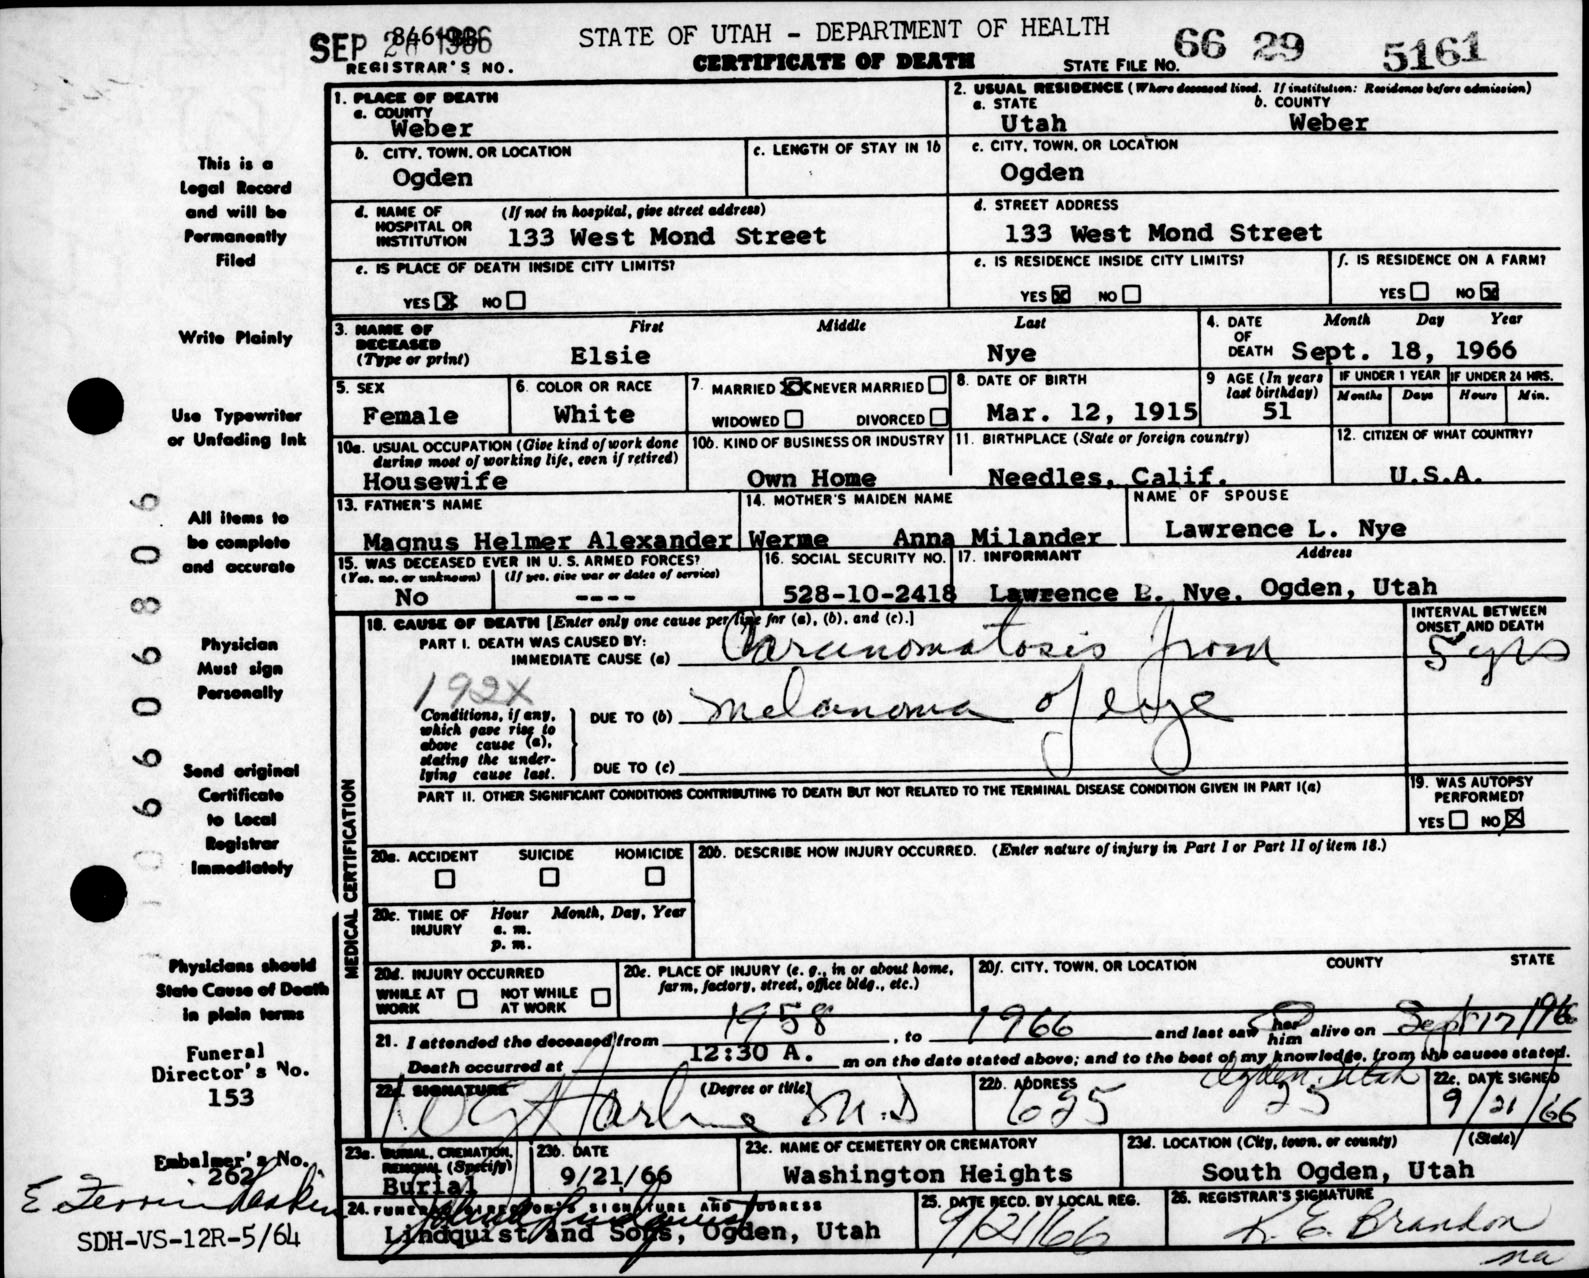 STATE OF UTAH - DEPARTMENT OF HEALTH
CERTIFICATE OF DEATH
SEP 1966
REGISTRAR'S NO.
STATE FILE NO. 66 29 5161
1. PLACE OF DEATH
a. COUNTY
Weber
2. USUAL RESIDENCE (Where deceased lived. If institution: Residence before admission)
a. STATE b. COUNTY
Utah Weber
b. CITY, TOWN, OR LOCATION
Ogden
c. LENGTH OF STAY IN 1b
c. CITY, TOWN, OR LOCATION
Ogden
d. NAME OF HOSPITAL OR INSTITUTION (If not in hospital, give street address)
133 West Mond Street
d. STREET ADDRESS
133 West Mond Street
e. IS PLACE OF DEATH INSIDE CITY LIMITS?
YES X NO
e. IS RESIDENCE INSIDE CITY LIMITS?
YES X NO
f. IS RESIDENCE ON A FARM?
YES NO X
3. NAME OF DECEASED (Type or print)
First Middle Last
Elsie Nye
4. DATE OF DEATH Month Day Year
Sept. 18, 1966
5. SEX
Female
6. COLOR OR RACE
White
7. MARRIED XX NEVER MARRIED
WIDOWED DIVORCED
8. DATE OF BIRTH
Mar. 12, 1915
9 AGE (In years last birthday)
51
IF UNDER 1 YEAR IF UNDER 24 HRS.
Months Days Hours Min.
10a. USUAL OCCUPATION (Give kind of work done during most of working life, even if retired)
Housewife
10b. KIND OF BUSINESS OR INDUSTRY
Own Home
11. BIRTHPLACE (State or foreign country)
Needles, Calif.
12. CITIZEN OF WHAT COUNTRY?
U.S.A.
13. FATHER'S NAME
Magnus Helmer Alexander Werme
14. MOTHER'S MAIDEN NAME
Anna Milander
NAME OF SPOUSE
Lawrence L. Nye
15. WAS DECEASED EVER IN U. S. ARMED FORCES?
(Yes, no, or unknown) (If yes, give war or dates of service)
No ----
16. SOCIAL SECURITY NO.
528-10-2418
17. INFORMANT Address
Lawrence L. Nye, Ogden, Utah
18. CAUSE OF DEATH [Enter only one cause per line for (a), (b), and (c).]
INTERVAL BETWEEN ONSET AND DEATH
PART I. DEATH WAS CAUSED BY:
IMMEDIATE CAUSE (a) Carcinomatosis from 5 yrs
192X
Conditions, if any, which gave rise to above cause (a), stating the underlying cause last.
DUE TO (b) melanoma of eye
DUE TO (c)
PART II. OTHER SIGNIFICANT CONDITIONS CONTRIBUTING TO DEATH BUT NOT RELATED TO THE TERMINAL DISEASE CONDITION GIVEN IN PART I(a)
19. WAS AUTOPSY PERFORMED?
YES NO X
MEDICAL CERTIFICATION
20a. ACCIDENT SUICIDE HOMICIDE
20b. DESCRIBE HOW INJURY OCCURRED. (Enter nature of injury in Part I or Part II of item 18.)
20c. TIME OF INJURY Hour Month, Day, Year
a. m.
p. m.
20d. INJURY OCCURRED
WHILE AT WORK NOT WHILE AT WORK
20e. PLACE OF INJURY (e. g., in or about home, farm, factory, street, office bldg., etc.)
20f. CITY, TOWN, OR LOCATION COUNTY STATE
21. I attended the deceased from 1958, to 1966 and last saw her him alive on Sept 17/1966
Death occurred at 12:30 A. m on the date stated above; and to the best of my knowledge, from the causes stated.
22a. SIGNATURE (Degree or title)
M.D
22b. ADDRESS
Ogden, Utah
625 25
22c. DATE SIGNED
9/21/66
23a. BURIAL, CREMATION, REMOVAL (Specify)
Burial
23b. DATE
9/21/66
23c. NAME OF CEMETERY OR CREMATORY
Washington Heights
23d. LOCATION (City, town, or county) (State)
South Ogden, Utah
24. FUNERAL DIRECTOR'S SIGNATURE AND ADDRESS
Lindquist and Sons, Ogden, Utah
25. DATE RECD. BY LOCAL REG.
9/21/66
26. REGISTRAR'S SIGNATURE
K. E. Brandon
na
This is a
Legal Record
and will be
Permanently
Filed
Write Plainly
Use Typewriter
or Unfading Ink
All items to
be complete
and accurate
Physician
Must sign
Personally
Send original
Certificate
to Local
Registrar
Immediately
Physicians should
State Cause of Death
in plain terms
Funeral
Director's No.
153
Embalmer's No.
262
SDH-VS-12R-5/64